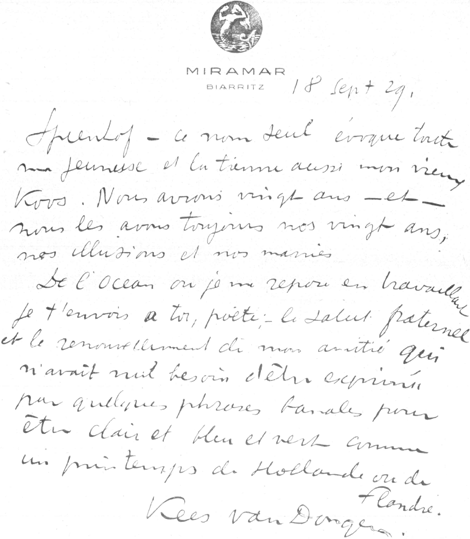 MIRAMAR
BIARRITZ
18 Sept 29.
Spuenhof - ce nom seul évoque toute
ma jeunesse et la tienne aussi mon vieux
Koos. Nous avions vingt ans - et -
nous les avons toujours nos vingt ans,
nos illusions et nos manies
De l'Ocean ou je me repose en travaillant
je t'envois a toi, poëte, - le salut fraternel
et le renouvellement de mon amitié qui
n'avait nul besoin d'être exprimée
par quelques phrases banales pour
être clair et bleu et vert comme
un printemps de Hollande ou de
Flandre.
Kees van Dongen.